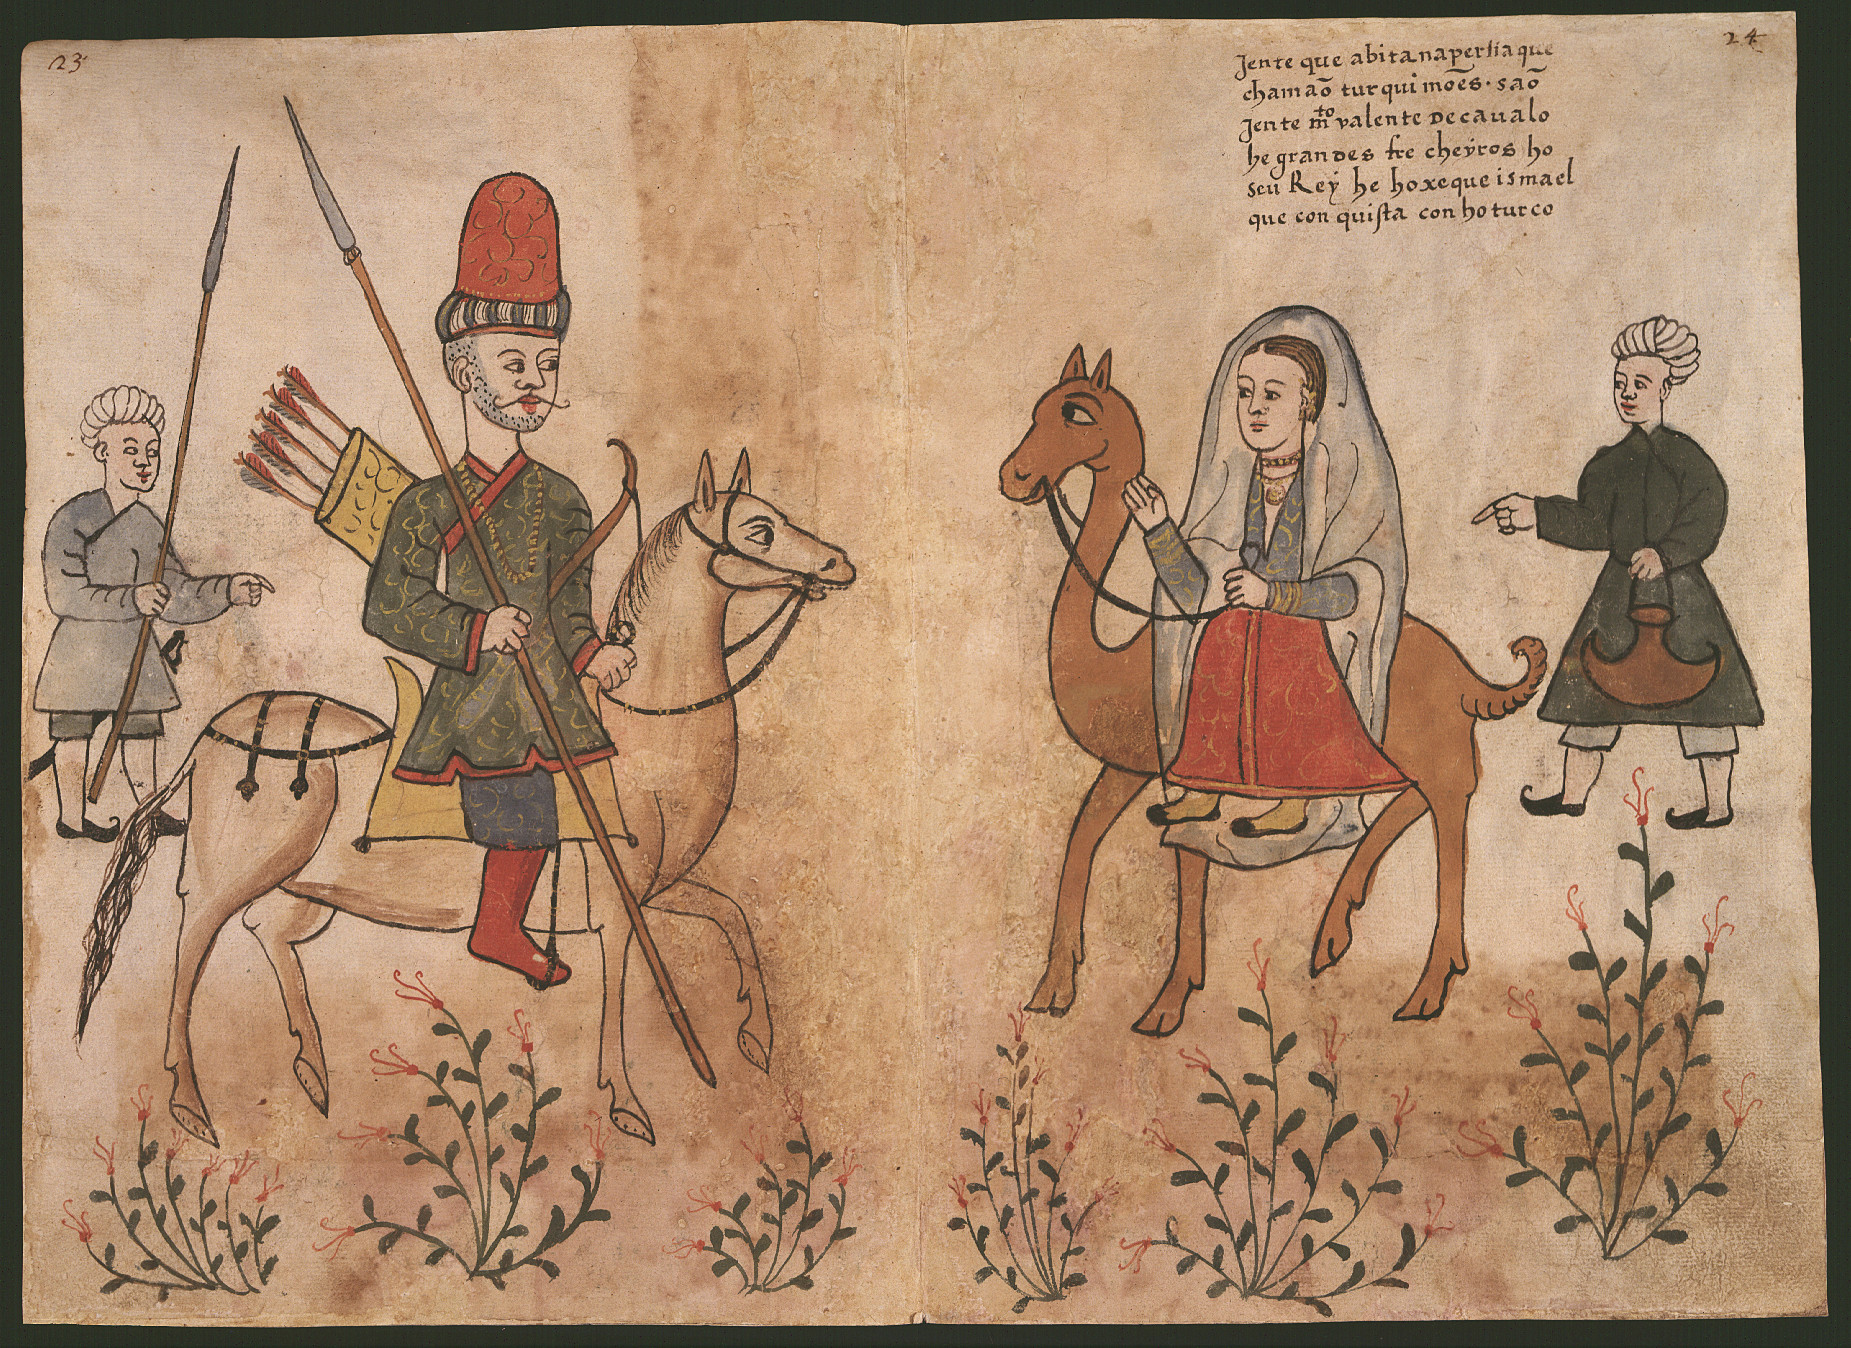 23
24
Jente que abita napersia que
chamaõ turquimoẽs · saõ
Jente mto valente decaualo
he grandes frecheyros ho
seu Rey he hoxeque ismael
que conquista con hoturco